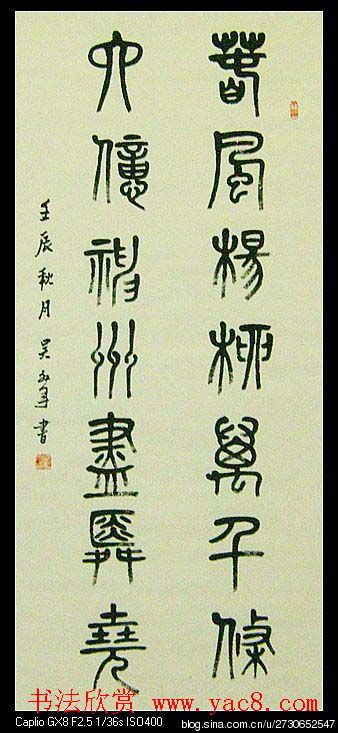 春风杨柳万千条
六亿神州尽舜尧
壬辰秋月吴玉军书
书法欣赏 www.yac8.com
Caplio GX8 F2.5 1/36s ISO400
blog.sina.com.cn/u/2730652547